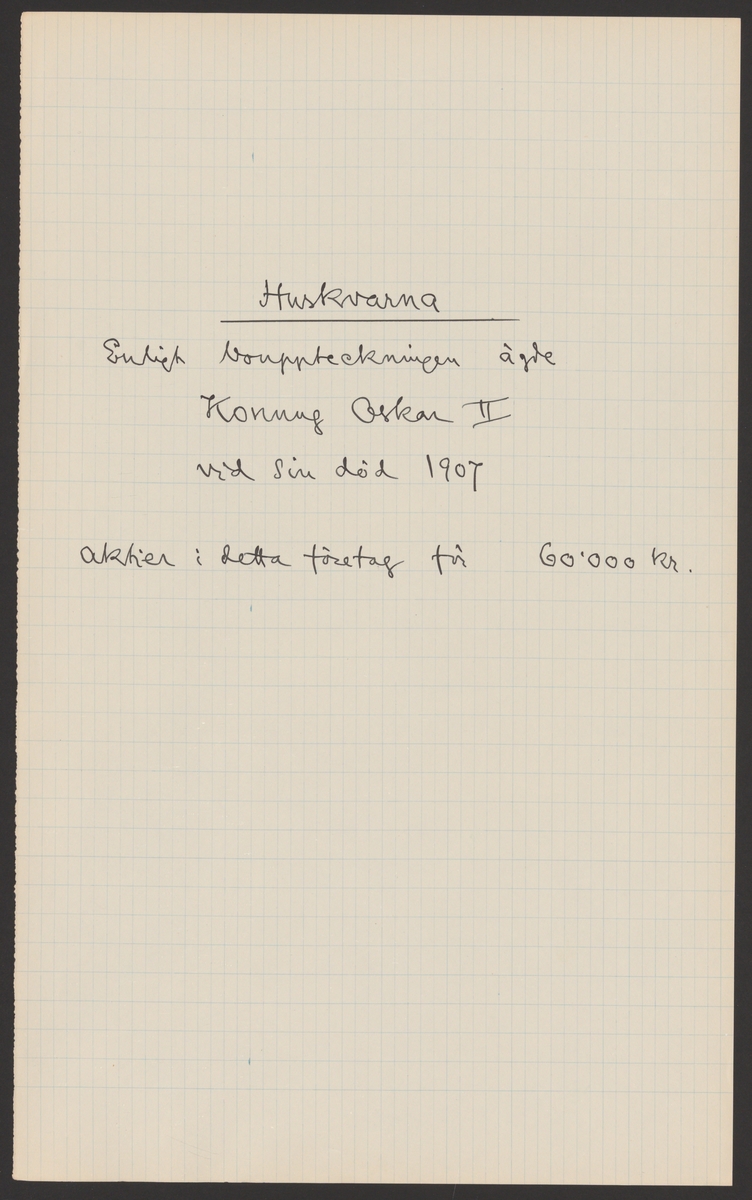 Huskvarna
Enligt bouppteckningen ägde
Konung Oskar II
vid sin död 1907
aktier i detta företag för 60'000 kr.